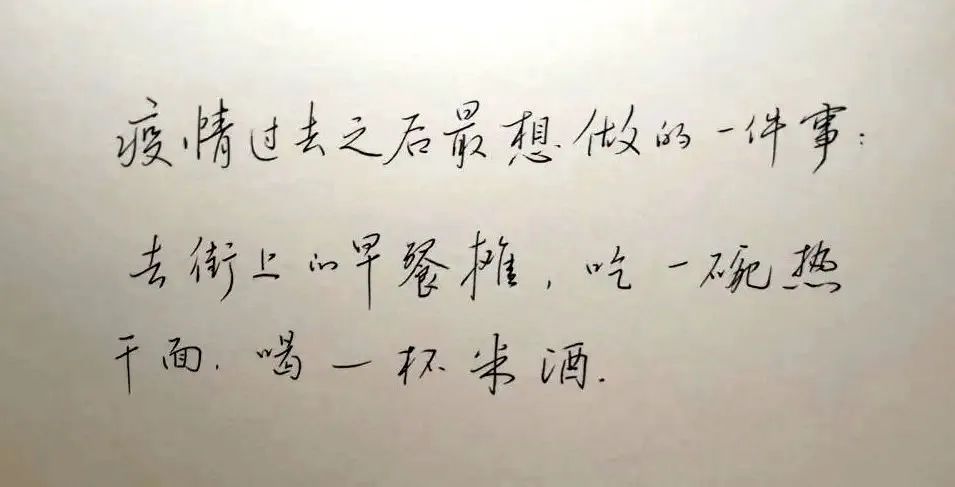 疫情过去之后最想做的一件事：
去街上的早餐摊，吃一碗热
干面，喝一杯米酒.